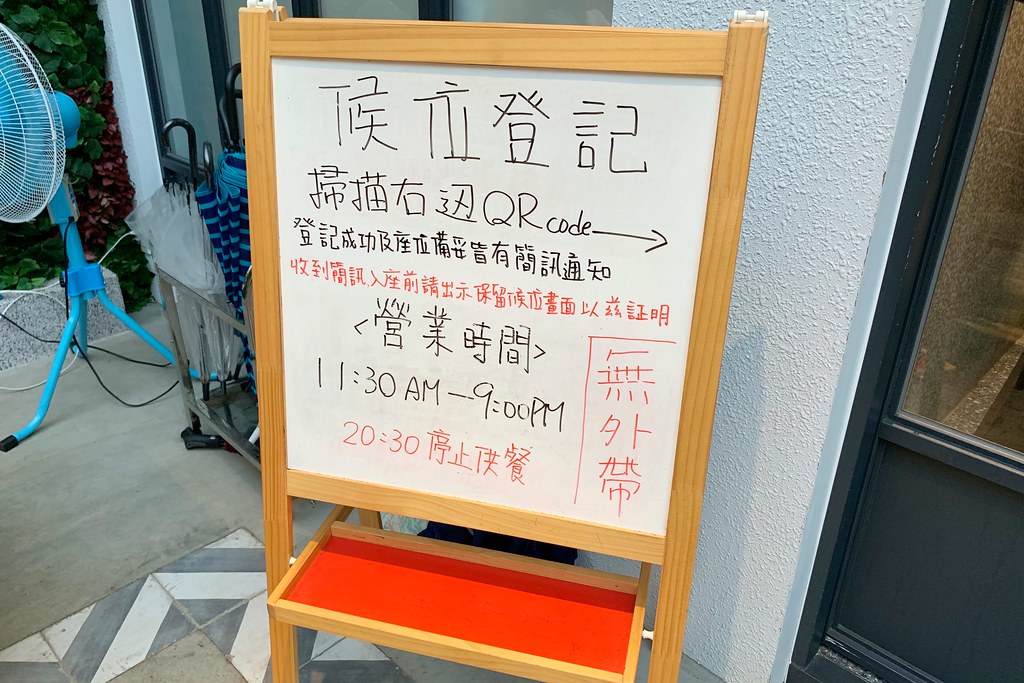 候位登記
掃描右边QR code→
登記成功及座位備妥皆有簡訊通知
收到簡訊入座前請出示保留候位畫面以茲証明
<營業時間>
11:30AM—9:00PM
20:30停止供餐
無外帶